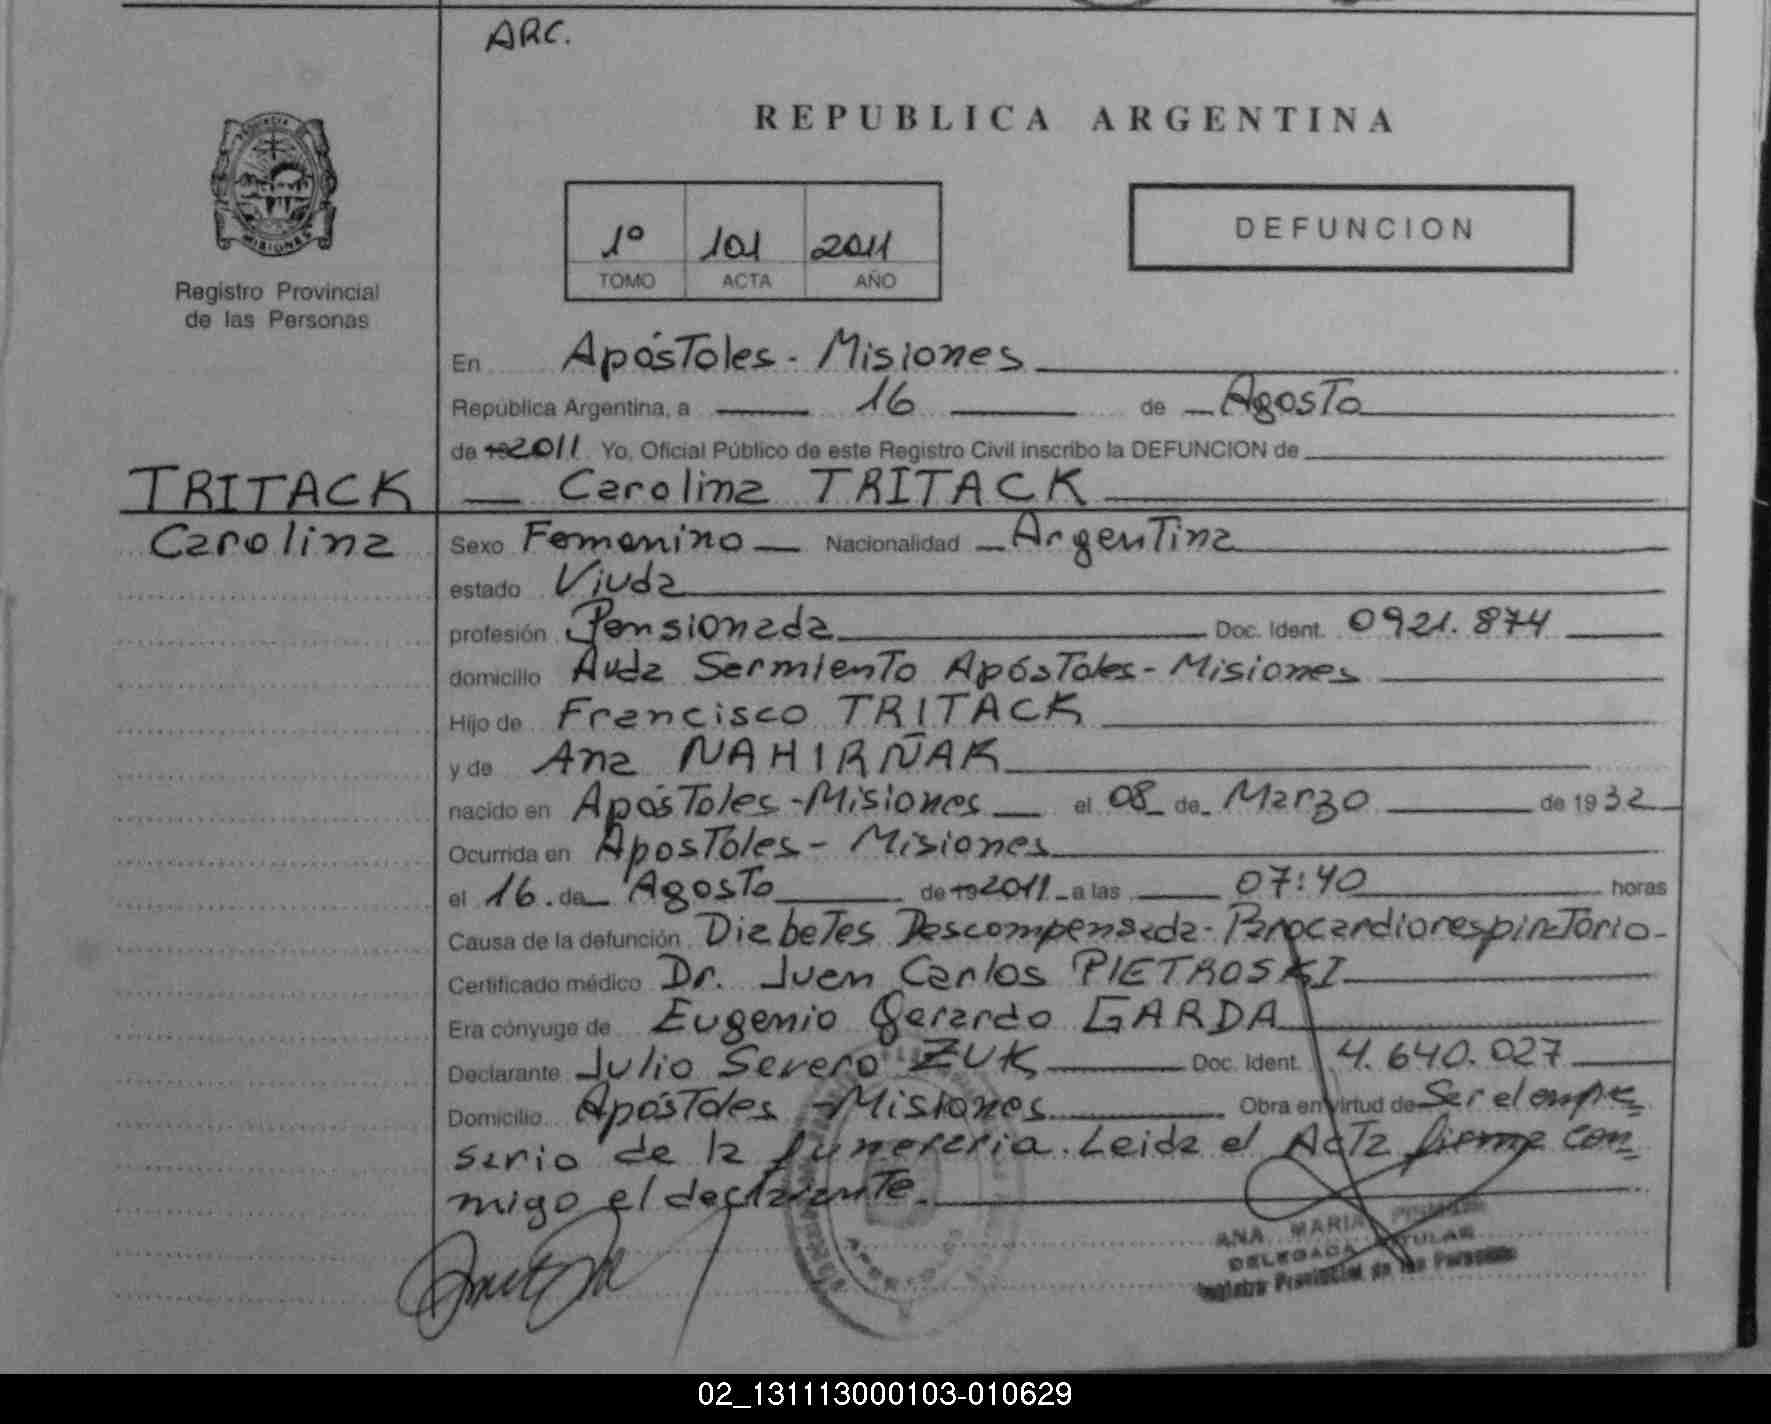 ARC.
PROVINCIA DE
MISIONES
Registro Provincial
de las Personas
REPUBLICA ARGENTINA
1º 101 2011
TOMO ACTA AÑO
DEFUNCION
En Apóstoles - Misiones
República Argentina, a 16 de Agosto
de 19 2011 Yo, Oficial Público de este Registro Civil inscribo la DEFUNCION de
TRITACK Carolina TRITACK
Carolina
Sexo Femenino Nacionalidad Argentina
estado Viuda
profesión Pensionada Doc. Ident. 0921.874
domicilio Avda Sarmiento Apóstoles - Misiones
Hijo de Francisco TRITACK
y de Ana NAHIRÑAK
nacido en Apóstoles - Misiones el 08 de Marzo de 1932
Ocurrida en Apostoles - Misiones
el 16. de Agosto de 19 2011 a las 07:40 horas
Causa de la defunción Diabetes Descompensada - Parocardiorespiratorio -
Certificado médico Dr. Juan Carlos PIETROSKI
Era cónyuge de Eugenio Gerardo GARDA
Declarante Julio Severo ZUK Doc. Ident. 4.640.027
Domicilio Apóstoles - Misiones Obra en virtud de Ser el empre=
sario de la funeraria. Leida el Acta firma con=
migo el declarante.
ANA MARIA
DELEGADA TITULAR
Registro Provincial de las Personas
APOSTOLES
02_131113000103-010629